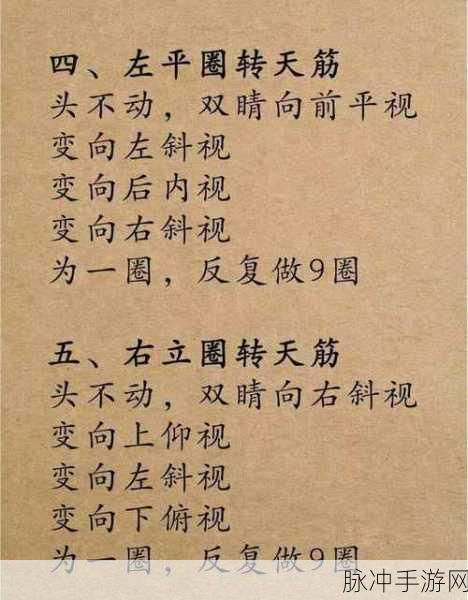 四、左平圈转天筋
头不动，双睛向前平视
变向左斜视
变向后内视
变向右斜视
为一圈，反复做9圈
五、右立圈转天筋
头不动，双睛向右斜视
变向上仰视
变向左斜视
变向下俯视
为一圈，反复做9圈
脉冲手游网